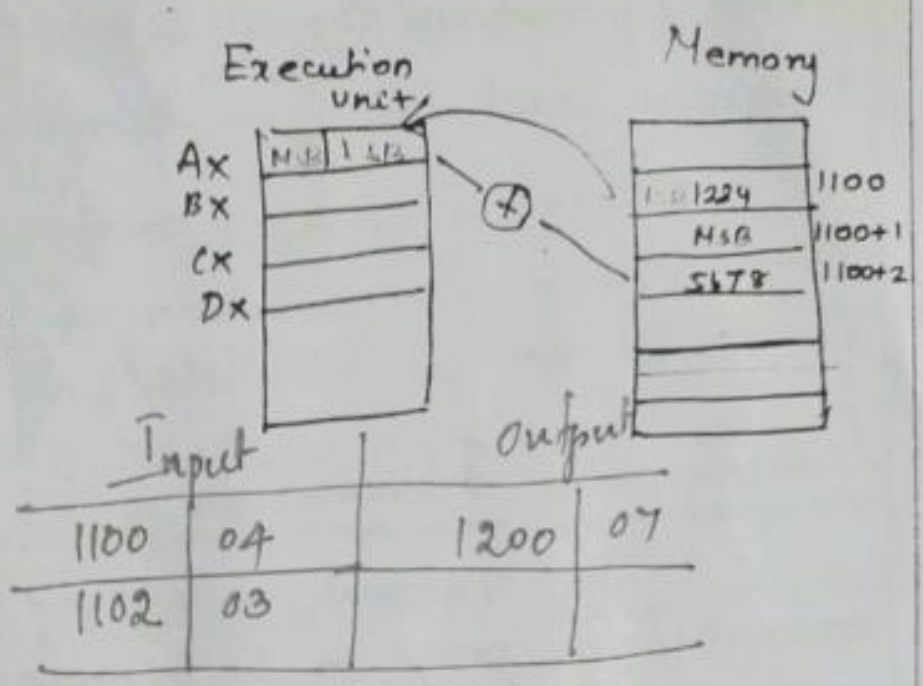 Execution
unit
Memory
Ax MSB LSB
Bx
Cx
Dx
+
1224 1100
MSB 1100+1
5678 1100+2
Input Output
1100 04 1200 07
1102 03